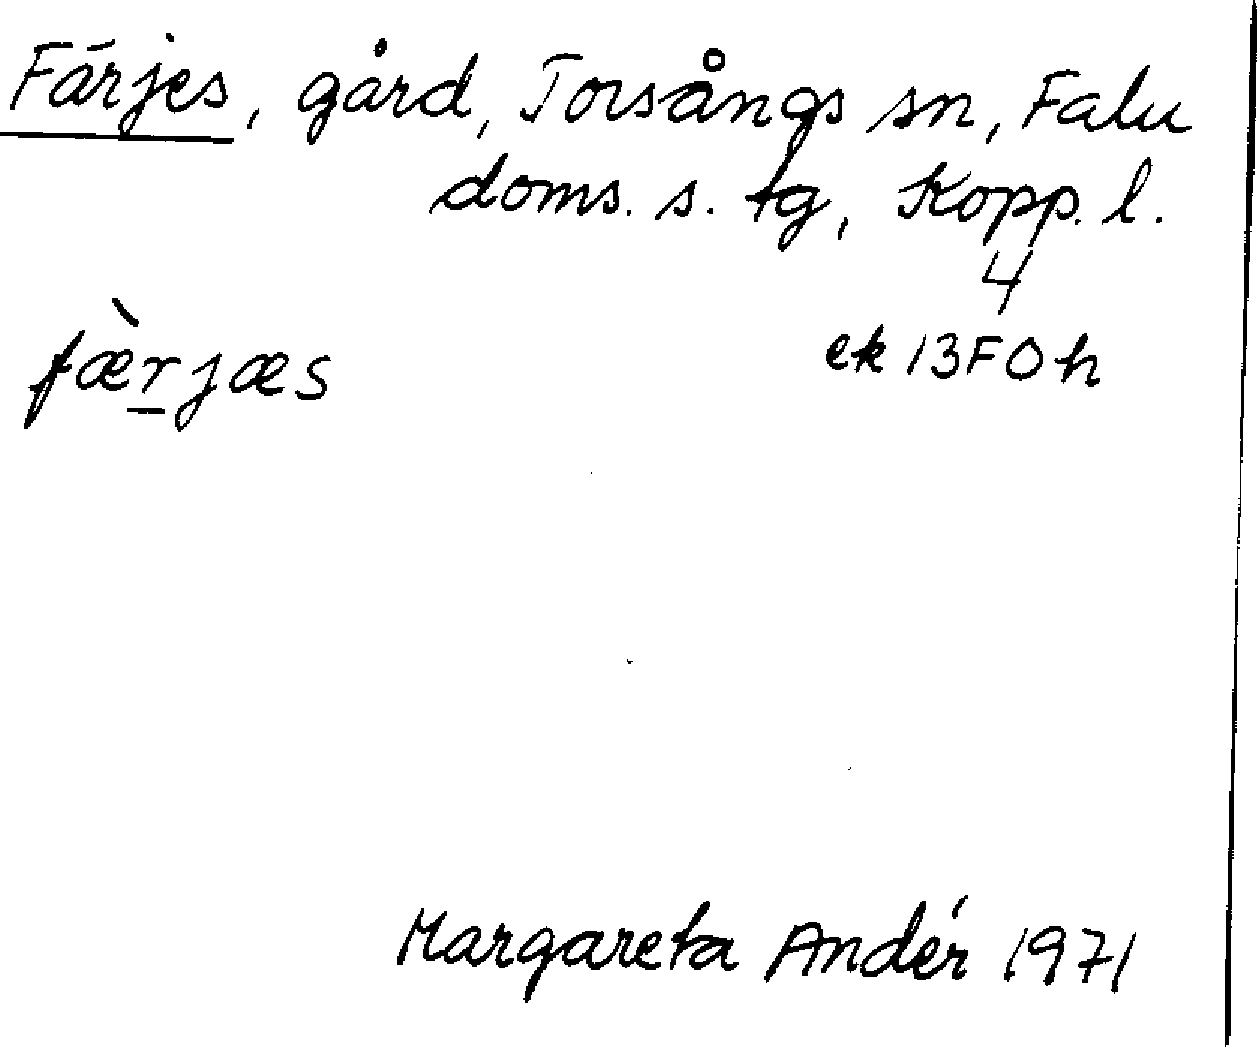 Färjes, gård, Torsångs sn, Falu
doms. s. tg, Kopp. l.
4
fæ̀r̲jæs ek 13F0h
Margareta Andér 1971